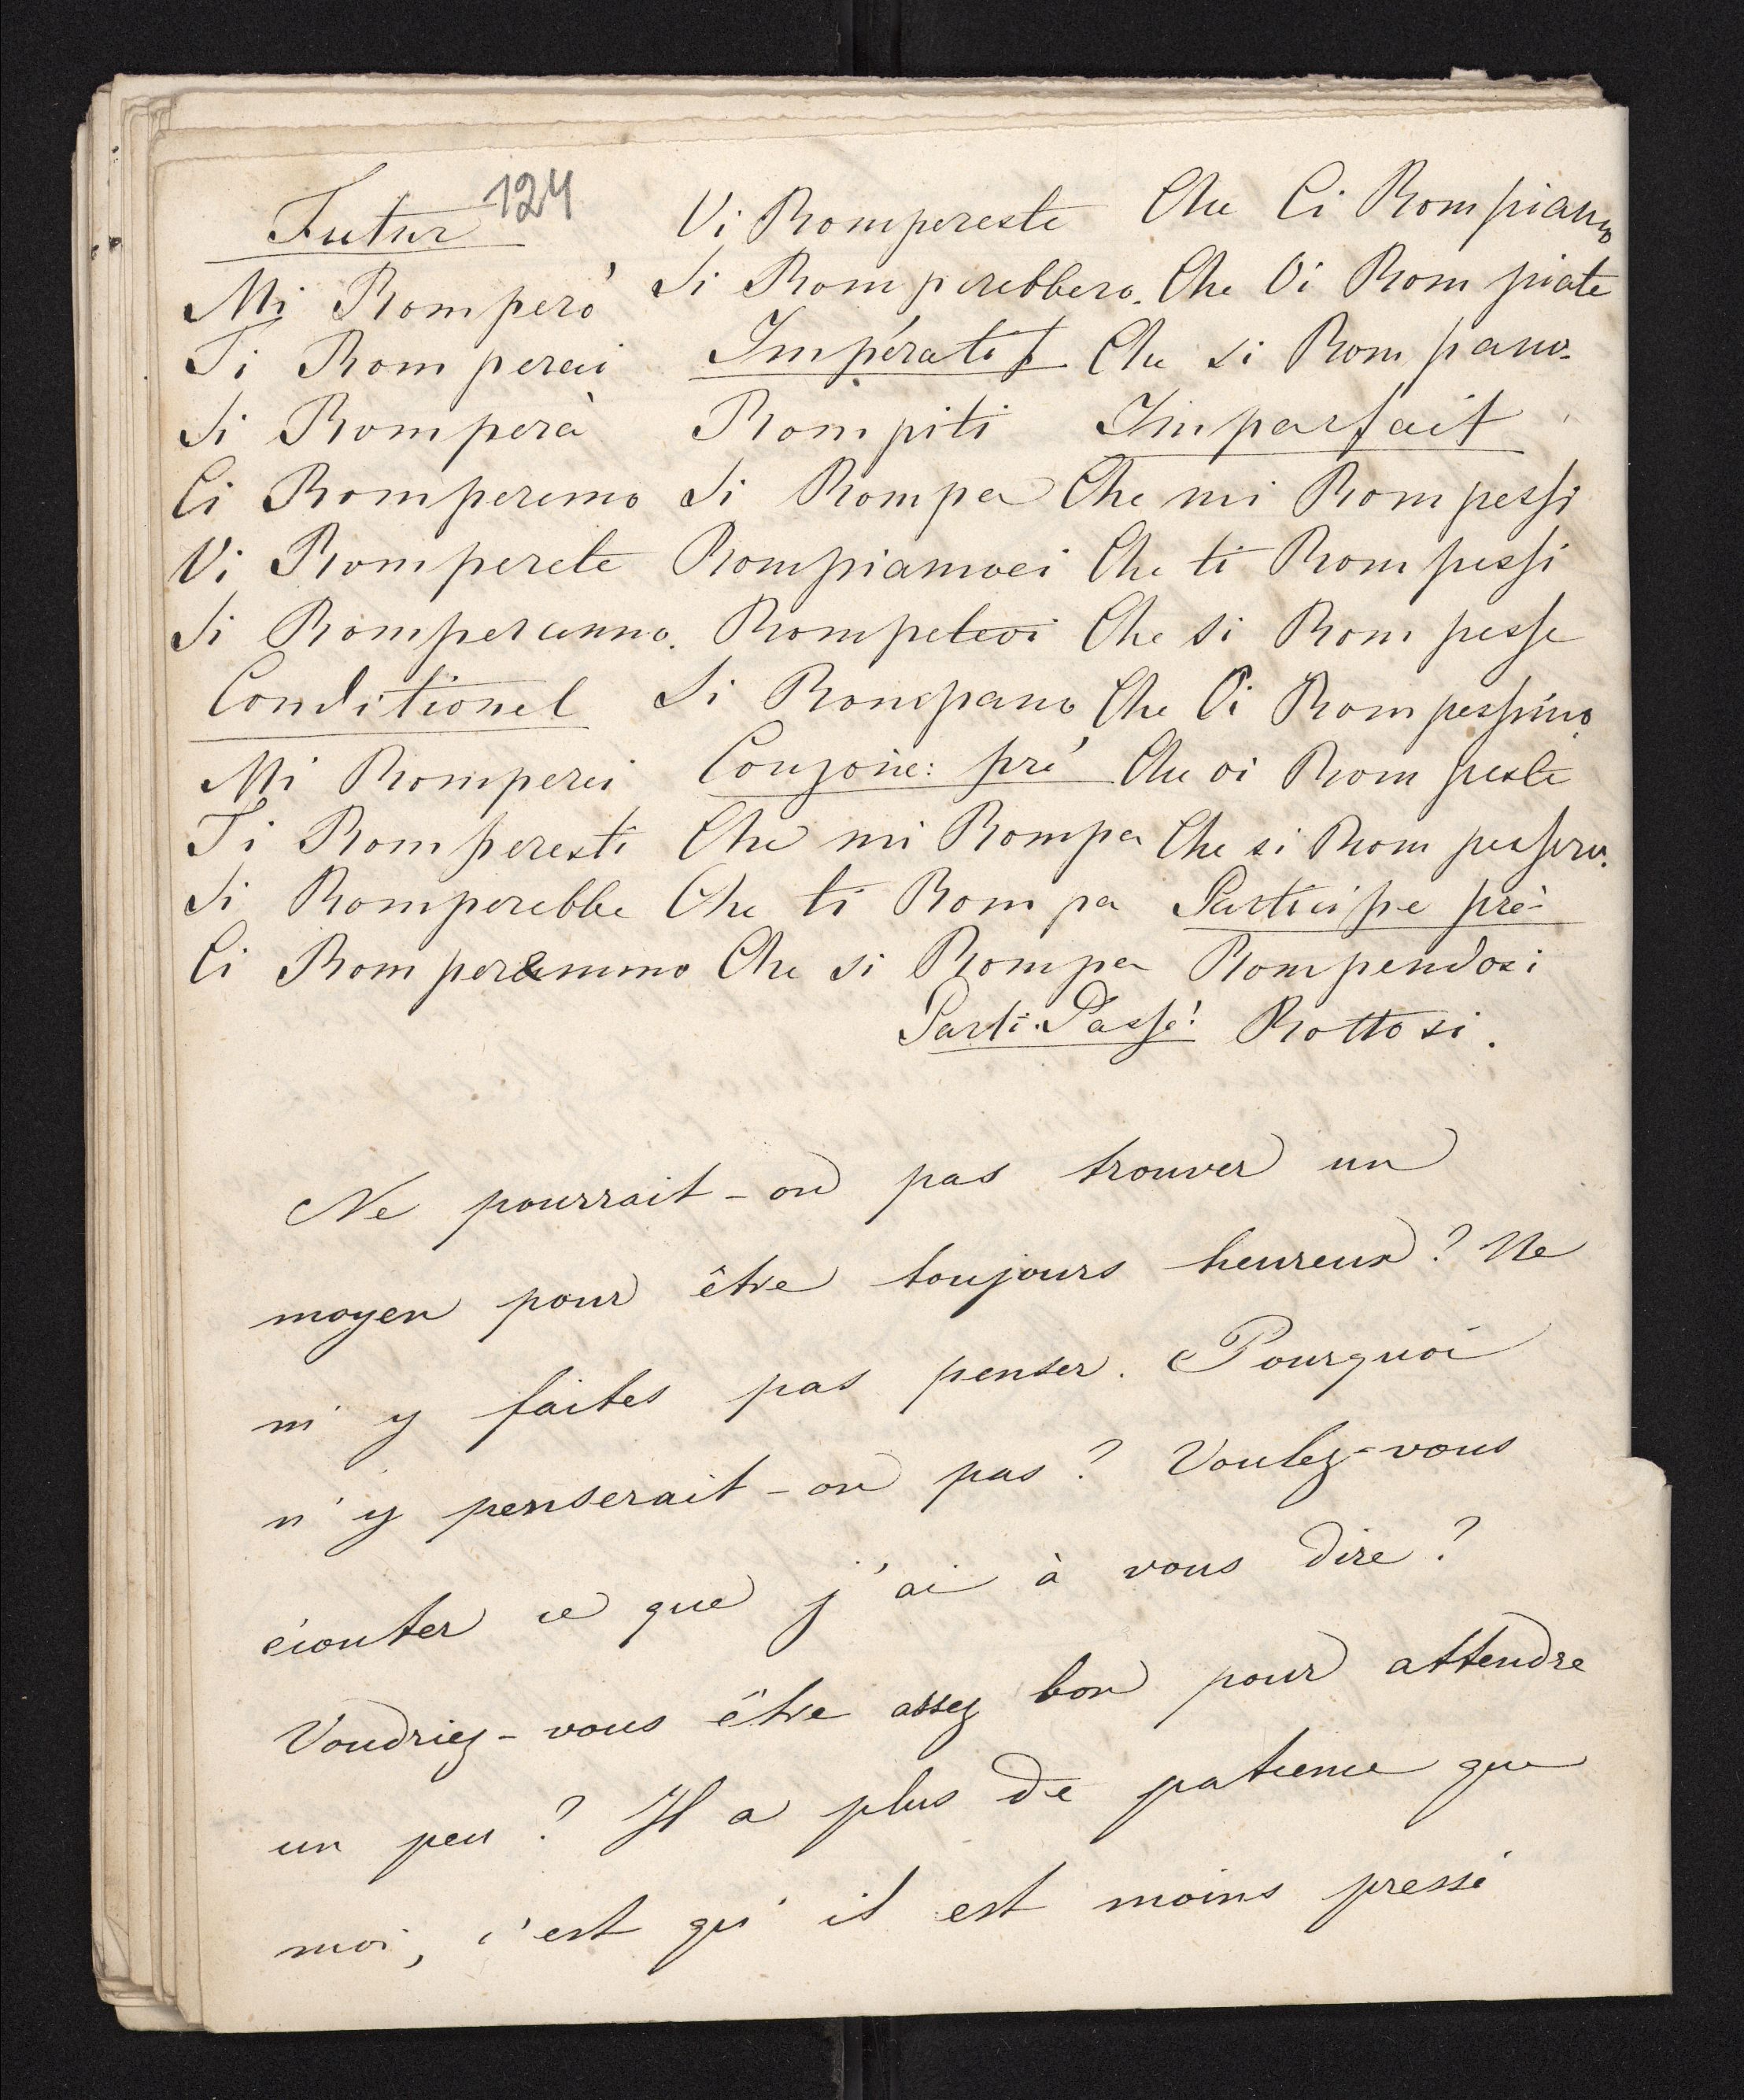 124
Futur
Mi Romperò
Ti Romperai
Si Romperà
Ci Romperemo
Vi Romperete
Si Romperanno.
Conditionel
Mi Romperei
Ti Romperesti
Si Romperebbe
Ci Romperemmo
Vi Rompereste
Si Romperebbero.
Impératif
Rompiti
Si Rompa
Rompiamoci
Rompetevi
Si Rompano
Conjonc: pré
Che mi Rompa
Che ti Rompa
Che si Rompa
Che Ci Rompiamo
Che Vi Rompiate
Che si Rompano.
Imparfait
Che mi Rompessi
Che ti Rompessi
Che si Rompesse
Che Ci Rompessimo
Che vi Rompeste
Che si Rompessero.
Participe pré-
Rompendosi
Parti. Passé: Rotto si.
Ne pourrait-on pas trouver un
moyen pour être toujours heureux? Ne
m'y faites pas penser. Pourquoi
n'y penserait-on pas? Voulez-vous
écouter ce que j'ai à vous dire?
Voudriez-vous être assez bon pour attendre
un peu? Il a plus de patience que
moi, c'est qu'il est moins pressé